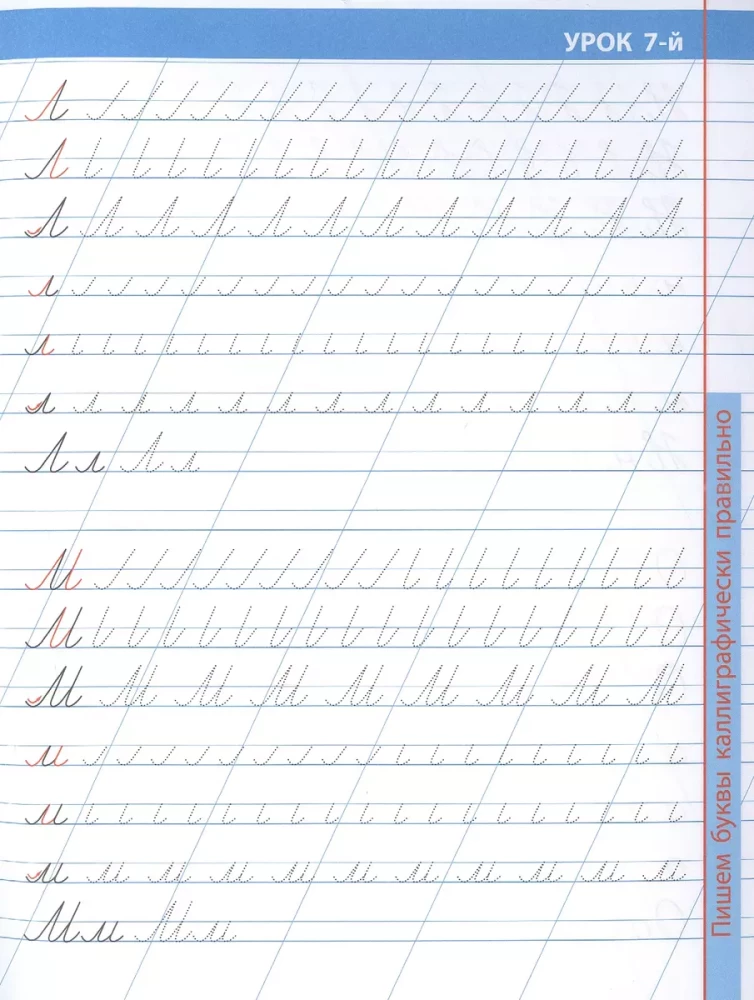 УРОК 7-й
Л
Л
Л Л Л Л Л Л Л Л Л Л Л Л
л
л
л л л л л л л л л л л л л л
Л л Л л
М
М
М М М М М М М М М
м
м
м м м м м м м м м м м
М м М м
Пишем буквы каллиграфически правильно